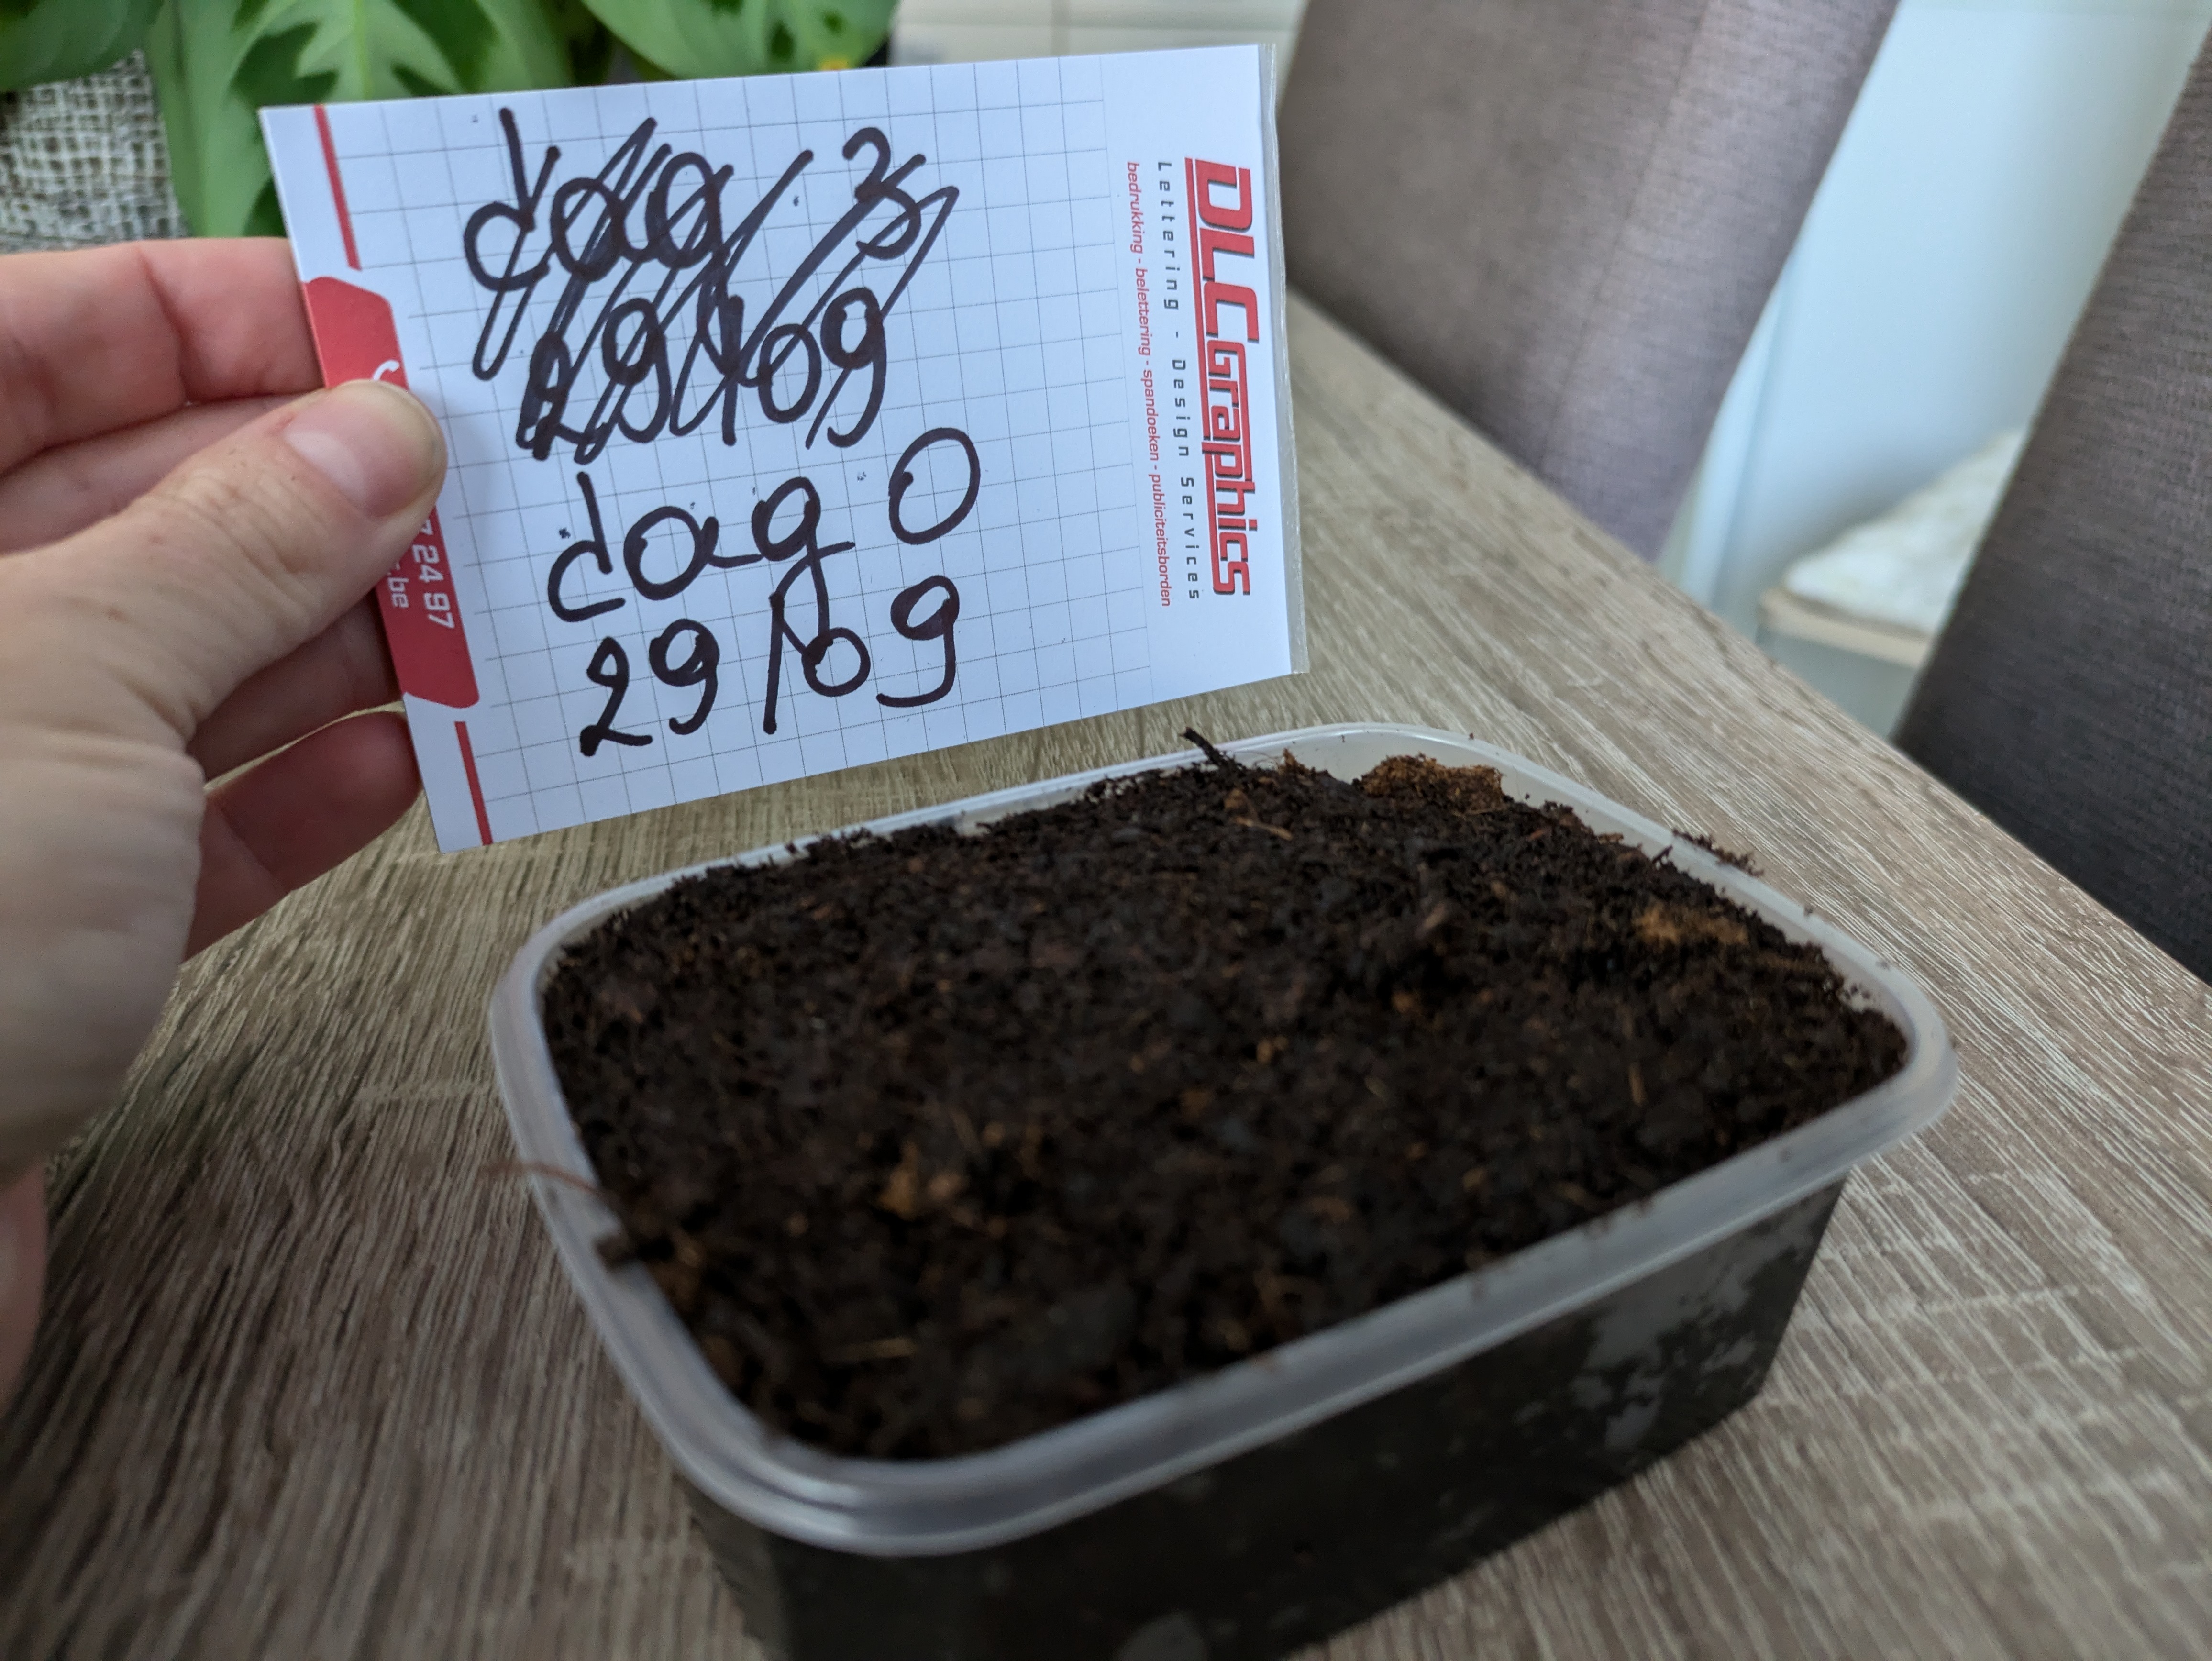 dag 3
29/09
dag 0
29/09
DLCGraphics
Lettering - Design Services
bedrukking - belettering - spandoeken - publiciteitsborden
24 97
.be